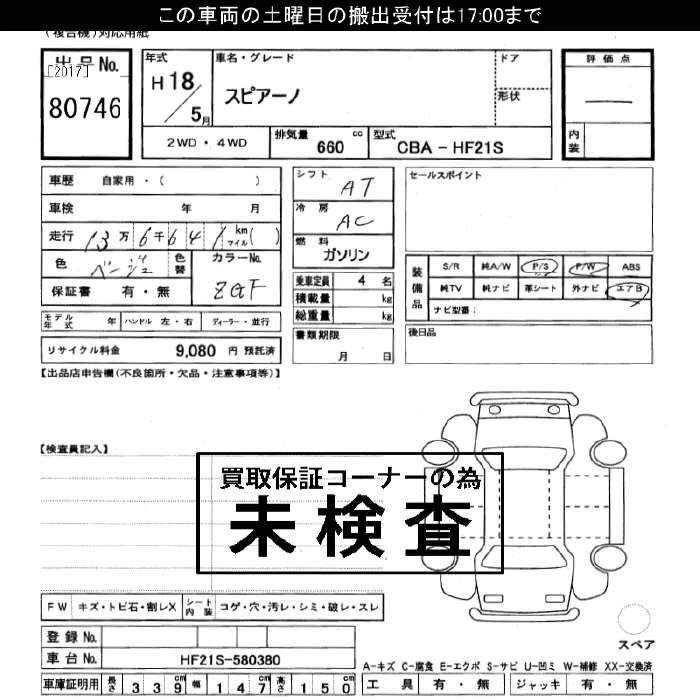 この車両の土曜日の搬出受付は17:00まで
(複合機)対応用紙
出品No.
[2017]
80746
年式
H 18/5月
車名・グレード
スピアーノ
ドア
形状
評価点
内装
2WD・4WD
排気量 660 cc
型式 CBA - HF21S
車歴 自家用・( )
車検 年 月
走行 13万6千641 km マイル( )
色 ベージュ
色替
カラーNo. ZGF
保証書 有・無
モデル年式 年 ハンドル 左・右 ディーラー・並行
リサイクル料金 9,080 円 預託済
シフト AT
冷房 AC
燃料 ガソリン
乗車定員 4 名
積載量 kg
総重量 kg
書類期限
月 日
セールスポイント
装備品
S/R 純A/W P/S P/W ABS
純TV 純ナビ 革シート 外ナビ エアB
ナビ型番:
後日品
【出品店申告欄(不良箇所・欠品・注意事項等)】
【検査員記入】
買取保証コーナーの為
未検査
FW キズ・トビ石・割レX シート内装 コゲ・穴・汚レ・シミ・破レ・スレ
登録No.
車台No. HF21S-580380
車庫証明用 長さ 339cm 幅 147cm 高さ 150cm
スペア
A-キズ C-腐食 E-エクボ S-サビ U-凹ミ W-補修 XX-交換済
工具 有・無 ジャッキ 有・無